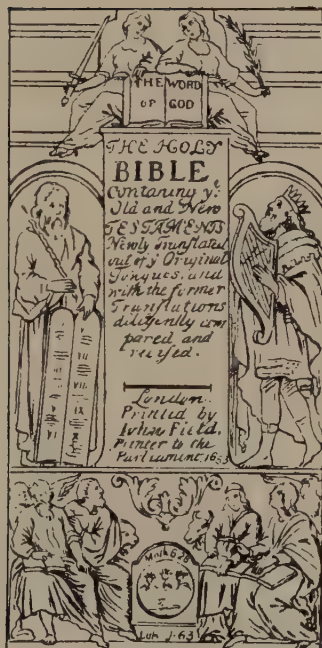 THE WORD
OF GOD
THE HOLY
BIBLE
Containing yᵉ
Old and New
TESTAMENTS
Newly translated
out of yᵉ Original
Tongues, and
with the former
Translations
diligently com
pared and
revised.
London.
Printed by
John Field,
Printer to the
Parliament, 1653
Luk 1.63